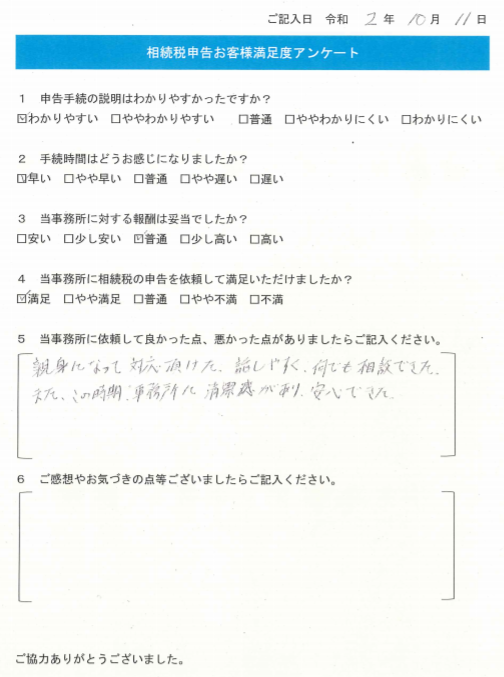 ご記入日 令和 2 年 10 月 11 日
相続税申告お客様満足度アンケート
1 申告手続の説明はわかりやすかったですか？
☑わかりやすい □ややわかりやすい □普通 □ややわかりにくい □わかりにくい
2 手続時間はどうお感じになりましたか？
☑早い □やや早い □普通 □やや遅い □遅い
3 当事務所に対する報酬は妥当でしたか？
□安い □少し安い ☑普通 □少し高い □高い
4 当事務所に相続税の申告を依頼して満足いただけましたか？
☑満足 □やや満足 □普通 □やや不満 □不満
5 当事務所に依頼して良かった点、悪かった点がありましたらご記入ください。
親身になって対応頂けた。話しやすく、何でも相談できた。
また、この時期、事務所に清潔感が有り、安心できた。
6 ご感想やお気づきの点等ございましたらご記入ください。
ご協力ありがとうございました。